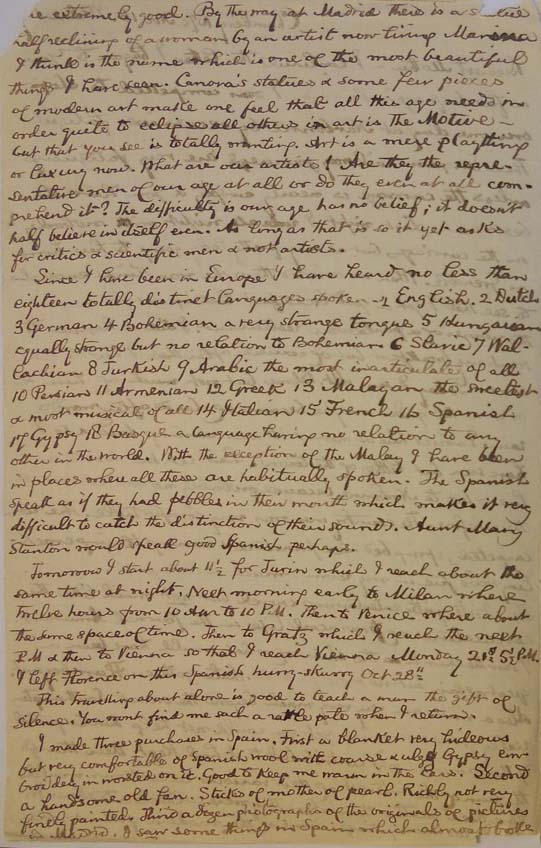 extremely good. By the way at Madrid there is a statue
half reclining of a woman by an artist now living
I think is the name which is one of the most beautiful
things I have seen. Canova's statues & some few pieces
of modern art make one feel that all this age needs in
order quite to eclipse all others in art is the Motive –
but that you see is totally wanting. Art is a mere plaything
or luxury now. What are our artists! Are they the repre-
sentative men of our age at all or do they even at all com-
prehend it? The difficulty is our age has no belief; it doesn't
half believe in itself even. As long as that is so it yet asks
for critics & scientific men & not artists.
Since I have been in Europe I have heard no less than
eighteen totally distinct languages spoken – 1 English. 2 Dutch
3 German 4 Bohemian a very strange tongue 5 Hungarian
equally strange but no relation to Bohemian 6 Slavic 7 Wal-
lachian 8 Turkish 9 Arabic the most inarticulate of all
10 Persian 11 Armenian 12 Greek 13 Malayan the sweetest
& most musical of all 14 Italian 15 French 16 Spanish
17 Gypsy 18 Basque a language having no relation to any
other in the world. With the exception of the Malay I have been
in places where all these are habitually spoken. The Spanish
speak as if they had pebbles in their mouth which makes it very
difficult to catch the distinction of their sounds. Aunt Mary
Stanton would speak good Spanish perhaps.
Tomorrow I start about 11½ for Turin which I reach about the
same time at night. Next morning early to Milan where
twelve hours from 10 AM to 10 P.M. Then to Venice where about
the same space of time. Then to Gratz which I reach the next
P.M & then to Vienna so that I reach Vienna Monday 21st 5½ P.M.
I left Florence on this Spanish hurry-skurry Oct 28th
This travelling about alone is good to teach a man the gift of
silence. You wont find me such a rattle pate when I return.
I made three purchases in Spain. First a blanket very hideous
but very comfortable of Spanish wool with coarse & ugly Gypsy em-
broidery in worsted on it. Good to keep me warm in the cars. Second
a handsome old fan. Sticks of mother of pearl. Richly not very
finely painted. Third a dozen photographs of the originals of pictures
in Madrid. I saw some things in Spain which almost broke